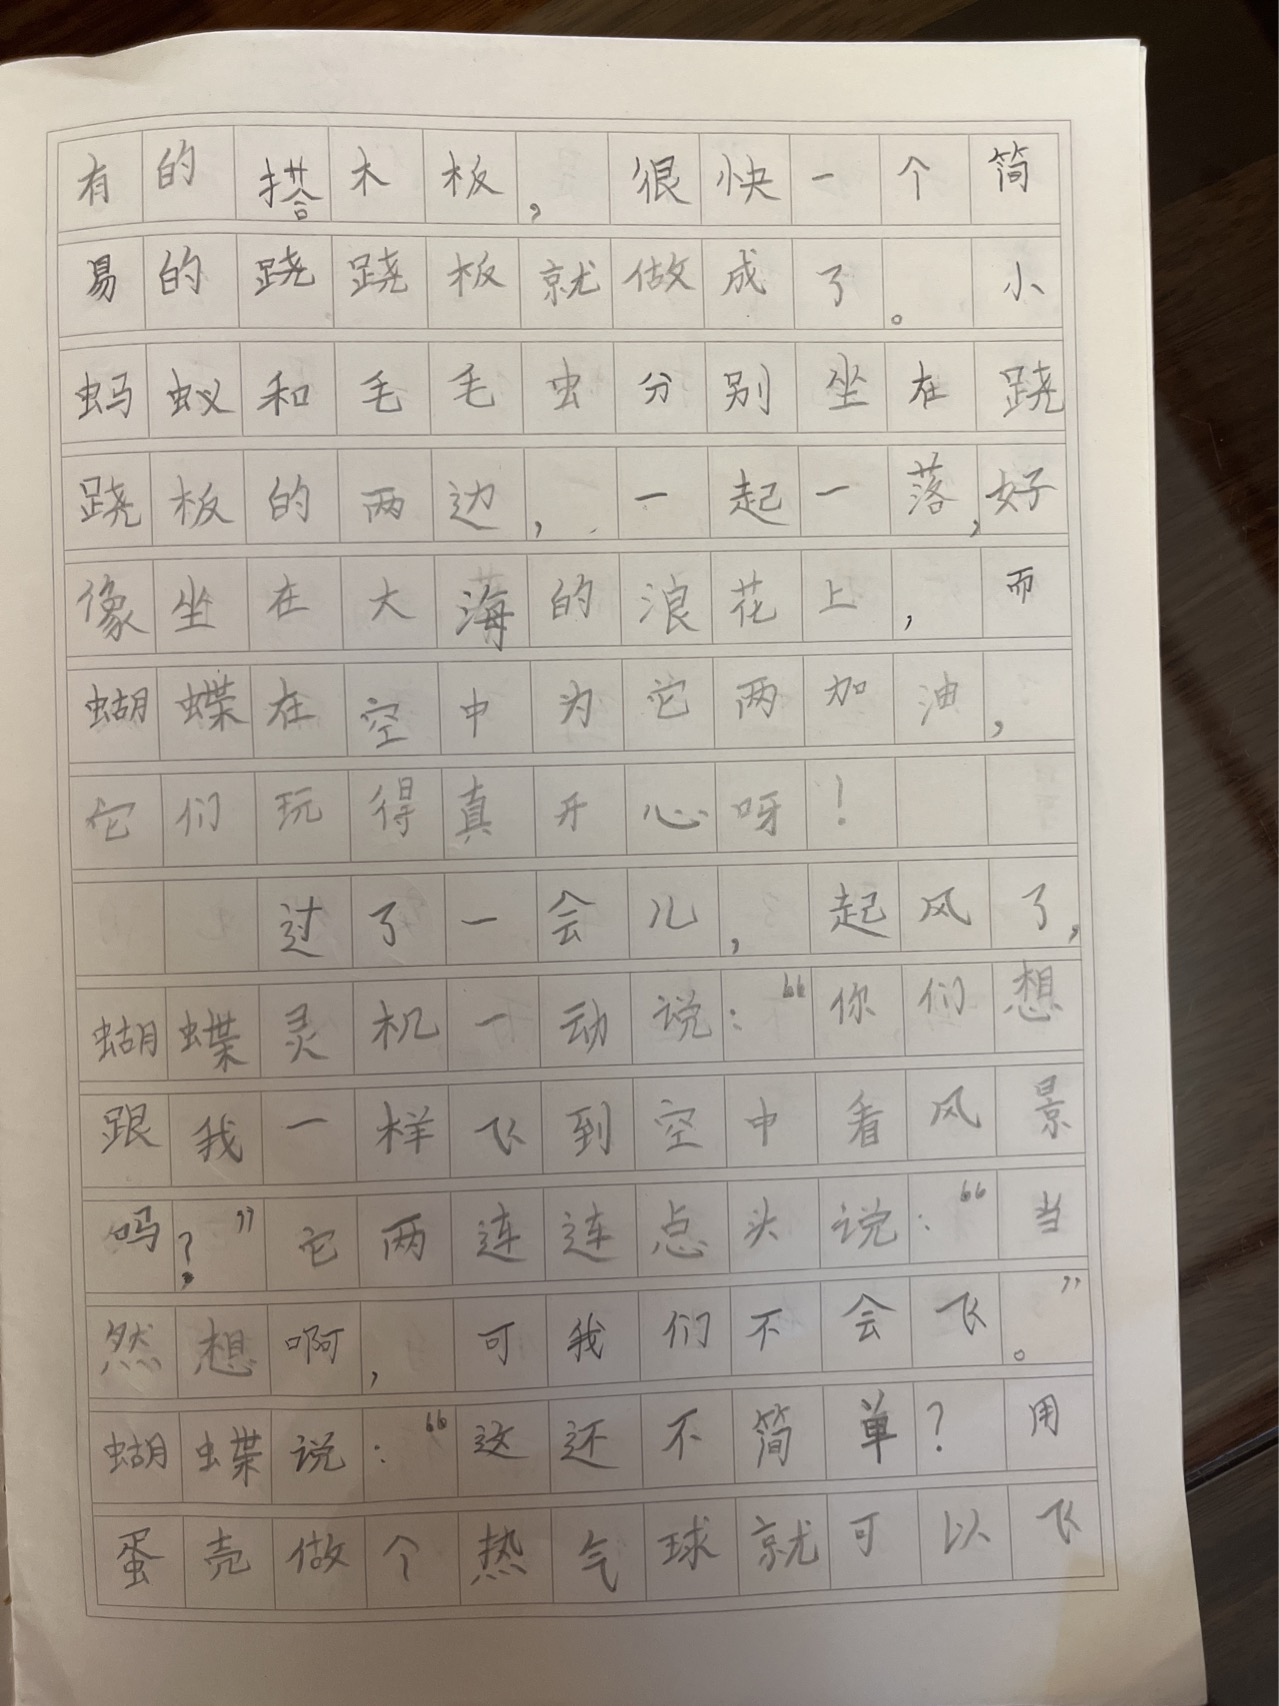 有的搭木板，很快一个简
易的跷跷板就做成了。小
蚂蚁和毛毛虫分别坐在跷
跷板的两边，一起一落，好
像坐在大海的浪花上，而
蝴蝶在空中为它两加油，
它们玩得真开心呀！
过了一会儿，起风了，
蝴蝶灵机一动说：“你们想
跟我一样飞到空中看风景
吗？”它两连连点头说：“当
然想啊，可我们不会飞。”
蝴蝶说：“这还不简单？用
蛋壳做个热气球就可以飞